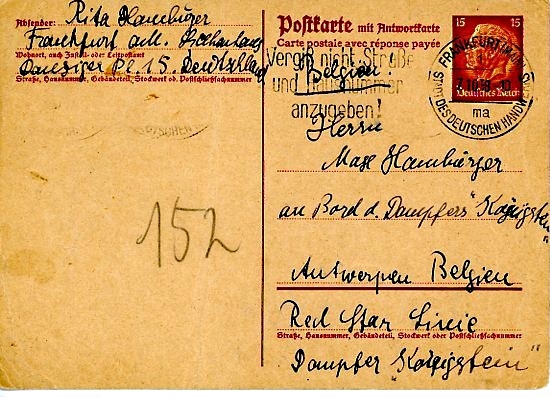 Absender: Rita Hamburger
Frankfurt a.M.
Wohnort, auch Zustell- oder Leitpostamt
Danziger Pl. 15. Deutschland
Straße, Hausnummer, Gebäudeteil, Stockwerk od. Postschließfachnummer
Postkarte mit Antwortkarte
Carte postale avec réponse payée
15 15
Deutsches Reich
Vergiß nicht Straße
und Hausnummer
anzugeben!
FRANKFURT (MAIN)
ma
STADT DES DEUTSCHEN HANDWERKS
Belgien!
Herrn
Max Hamburger
an Bord d. Dampfers "Königstein"
Antwerpen Belgien
Red Star Linie
Straße, Hausnummer, Gebäudeteil, Stockwerk oder Postschließfachnummer
Dampfer "Königstein"
152